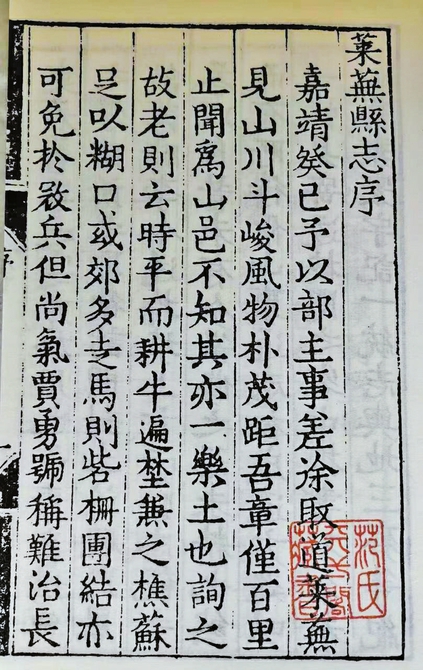 萊蕪縣志序
嘉靖癸巳予以部主事差涂取道萊蕪
見山川斗峻風物朴茂距吾章僅百里
止聞爲山邑不知其亦一樂土也詢之
故老則云時平而耕牛遍埜兼之樵蘇
足以糊口或郊多走馬則砦柵團結亦
可免於兵但尚氣賈勇號稱難治長
范氏
天一閣
藏書